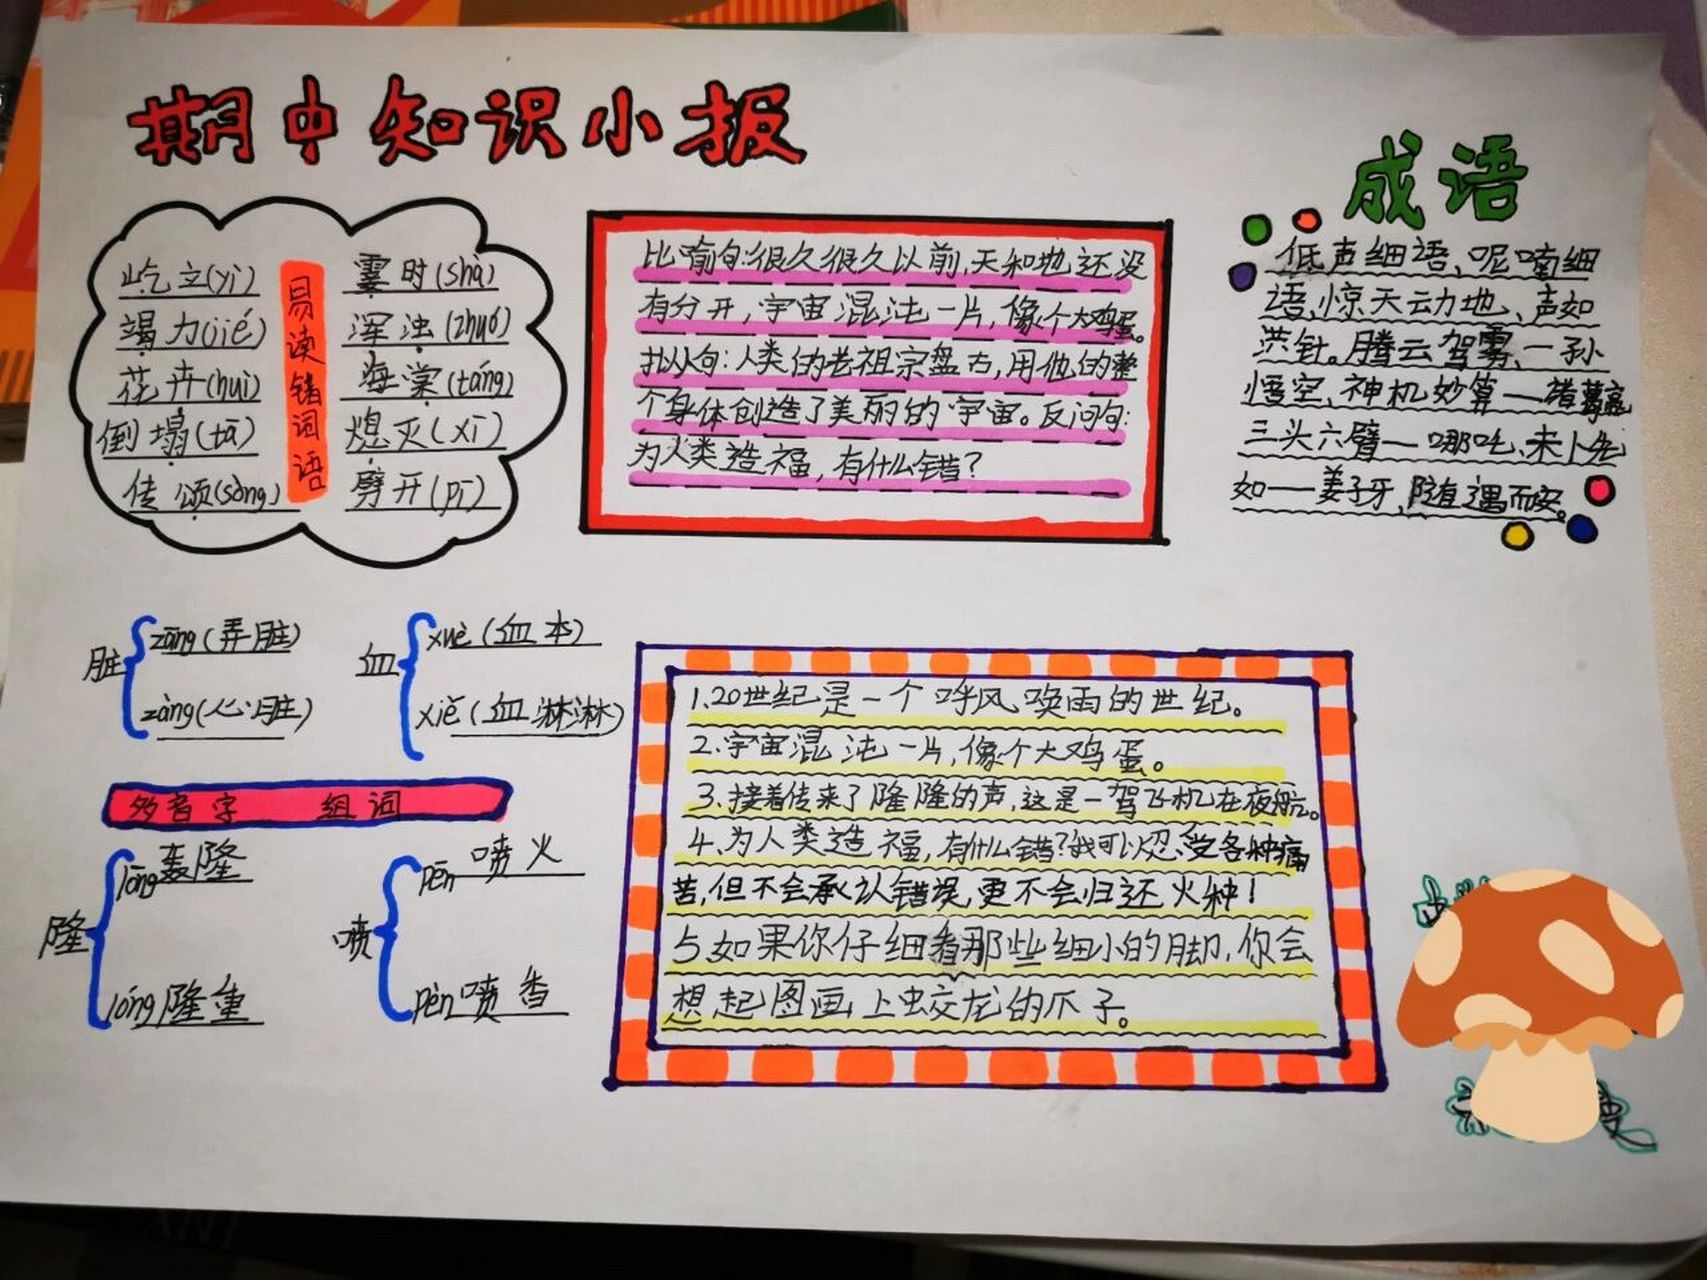 期中知识小报
屹立(yì)
竭力(jié)
花卉(huì)
倒塌(tā)
传颂(sòng)
易读错词语
霎时(shà)
浑浊(zhuó)
海棠(táng)
熄灭(xī)
劈开(pī)
比喻句:很久很久以前,天和地还没
有分开,宇宙混沌一片,像个大鸡蛋。
拟人句:人类的老祖宗盘古,用他的整
个身体创造了美丽的宇宙。反问句:
为人类造福,有什么错?
成语
低声细语、呢喃细
语、惊天动地、声如
洪钟。腾云驾雾—孙
悟空、神机妙算—诸葛亮
三头六臂—哪吒、未卜先
如—姜子牙,随遇而安。
脏
zāng(弄脏)
zàng(心脏)
血
xuè(血本)
xiě(血淋淋)
多音字 组词
隆
lōng轰隆
lóng隆重
喷
pēn喷火
pèn喷香
1.20世纪是一个呼风唤雨的世纪。
2.宇宙混沌一片,像个大鸡蛋。
3.接着传来了隆隆的声,这是一驾飞机在夜航。
4.为人类造福,有什么错?我可以忍受各种痛
苦,但不会承认错误,更不会归还火种!
5.如果你仔细看那些细小的脚,你会
想起图画上蛟龙的爪子。